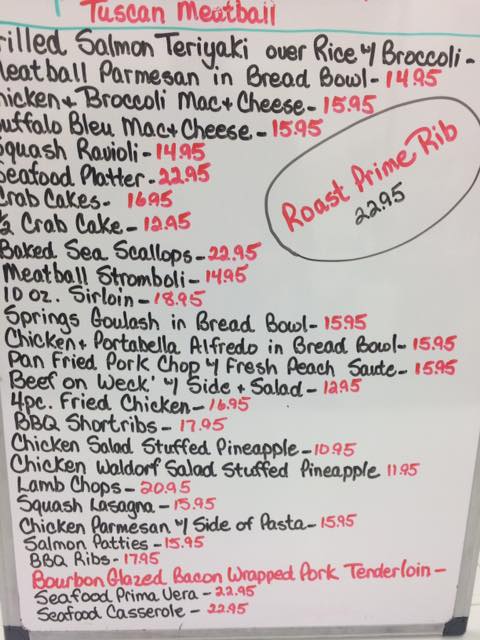 Tuscan Meatball
rilled Salmon Teriyaki over Rice w/ Broccoli -
eatball Parmesan in Bread Bowl - 14.95
hicken + Broccoli Mac + Cheese - 15.95
uffalo Bleu Mac + Cheese - 15.95
Squash Ravioli - 14.95
Seafood Platter - 22.95
Crab Cakes - 16.95
1/2 Crab Cake - 12.95
Baked Sea Scallops - 22.95
Meatball Stromboli - 14.95
10 oz. Sirloin - 18.95
Springs Goulash in Bread Bowl - 15.95
Chicken + Portabella Alfredo in Bread Bowl - 15.95
Pan Fried Pork Chop w/ Fresh Peach Saute - 15.95
Beef on Weck' w/ Side + Salad - 12.95
4pc. Fried Chicken - 16.95
BBQ Shortribs - 17.95
Chicken Salad Stuffed Pineapple - 10.95
Chicken Waldorf Salad Stuffed Pineapple 11.95
Lamb Chops - 20.95
Squash Lasagna - 15.95
Chicken Parmesan w/ Side of Pasta - 15.95
Salmon Patties - 15.95
BBQ Ribs - 17.95
Bourbon Glazed Bacon Wrapped Pork Tenderloin -
Seafood Prima Vera - 22.95
Seafood Casserole - 22.95
Roast Prime Rib
22.95